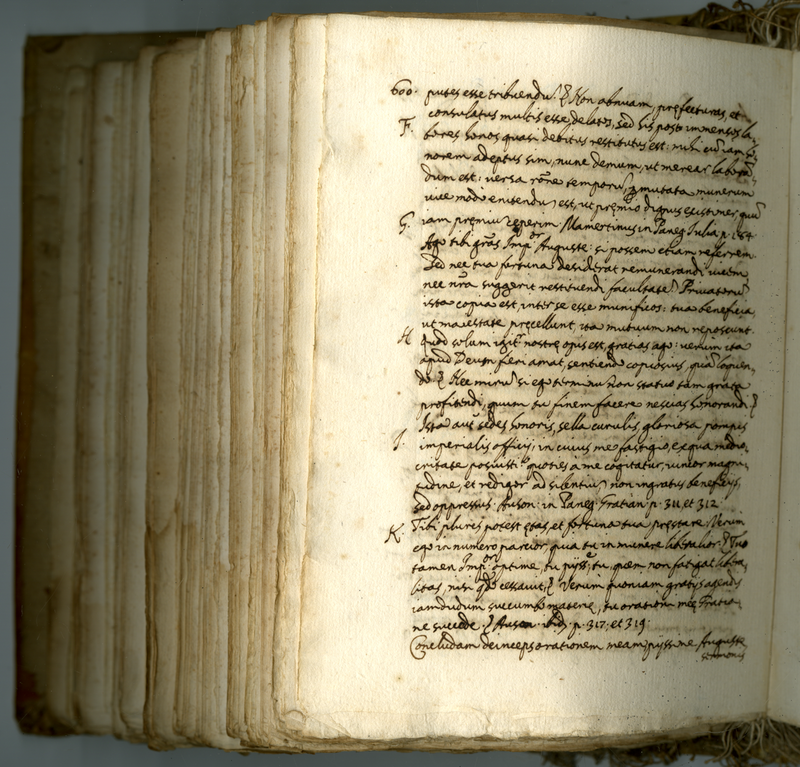 600. putes esse tribuendũ. Non abnuam, pręfecturas, et
consulatus multis esse delatos, sed his post immensos la-
F. bores honos quasi debitus restitutus est: mihi cũ iam ho-
norem adeptus sim, nunc demum, ut merear, laborã-
dum est: versa rõne temporũ, mutata munerum
vice modo enitendũ est, ut pręmio dignus existimer, quũ
G. iam pręmiũ ceperim Mamertinus in Paneg. Iulia. p. 154
Ago tibi grãs Imp.or Auguste: si possem etiam referrem.
Sed nec tua fortuna desiderat remunerandi vicem
nec nrã suggerit restituendi facultatẽ. Privatorũ
ista copia est, inter se esse munificos: tua beneficia,
ut maiestate pręcellunt, ita mutuum non reposcunt.
H quod solum igit.r nostrę opis est, gratias ago: verum ita
apud Deum fieri amat, sentiendo copiosius, quã loquen-
do. Nec mirũ si ego terminũ non statuo tam grata
profitendi, quum tu finem facere nescias honorandi.
Ista aut sedes honoris, sella curulis, gloriosa pompis
I. imperialis officij, in cuius me fastigio, ex qua medio-
critate posuisti quoties a me cogitatur, vincor magni-
tudine, et redigor ad silentiũ non ingratus beneficijs,
sed oppressus. Auson. in Paneg. Gratian. p. 311, et 312.
K. Tibi plures potest ętas, et fortuna tua pręstare. Verum
ego in numero parcior, quã tu in munere liberalior. Tu
tamen Imp.or optime, tu pijss.e, tu, quem non fatigat libera-
litas, nisi qdo cessavit. Verum quoniam gratijs agendis
iamdudum succumbo materię, tu orationi męę Gratia-
ne succede. Auson. ibid. p. 317, et 319.
Concludam deinceps orationem meam pijssime Auguste
sermonis